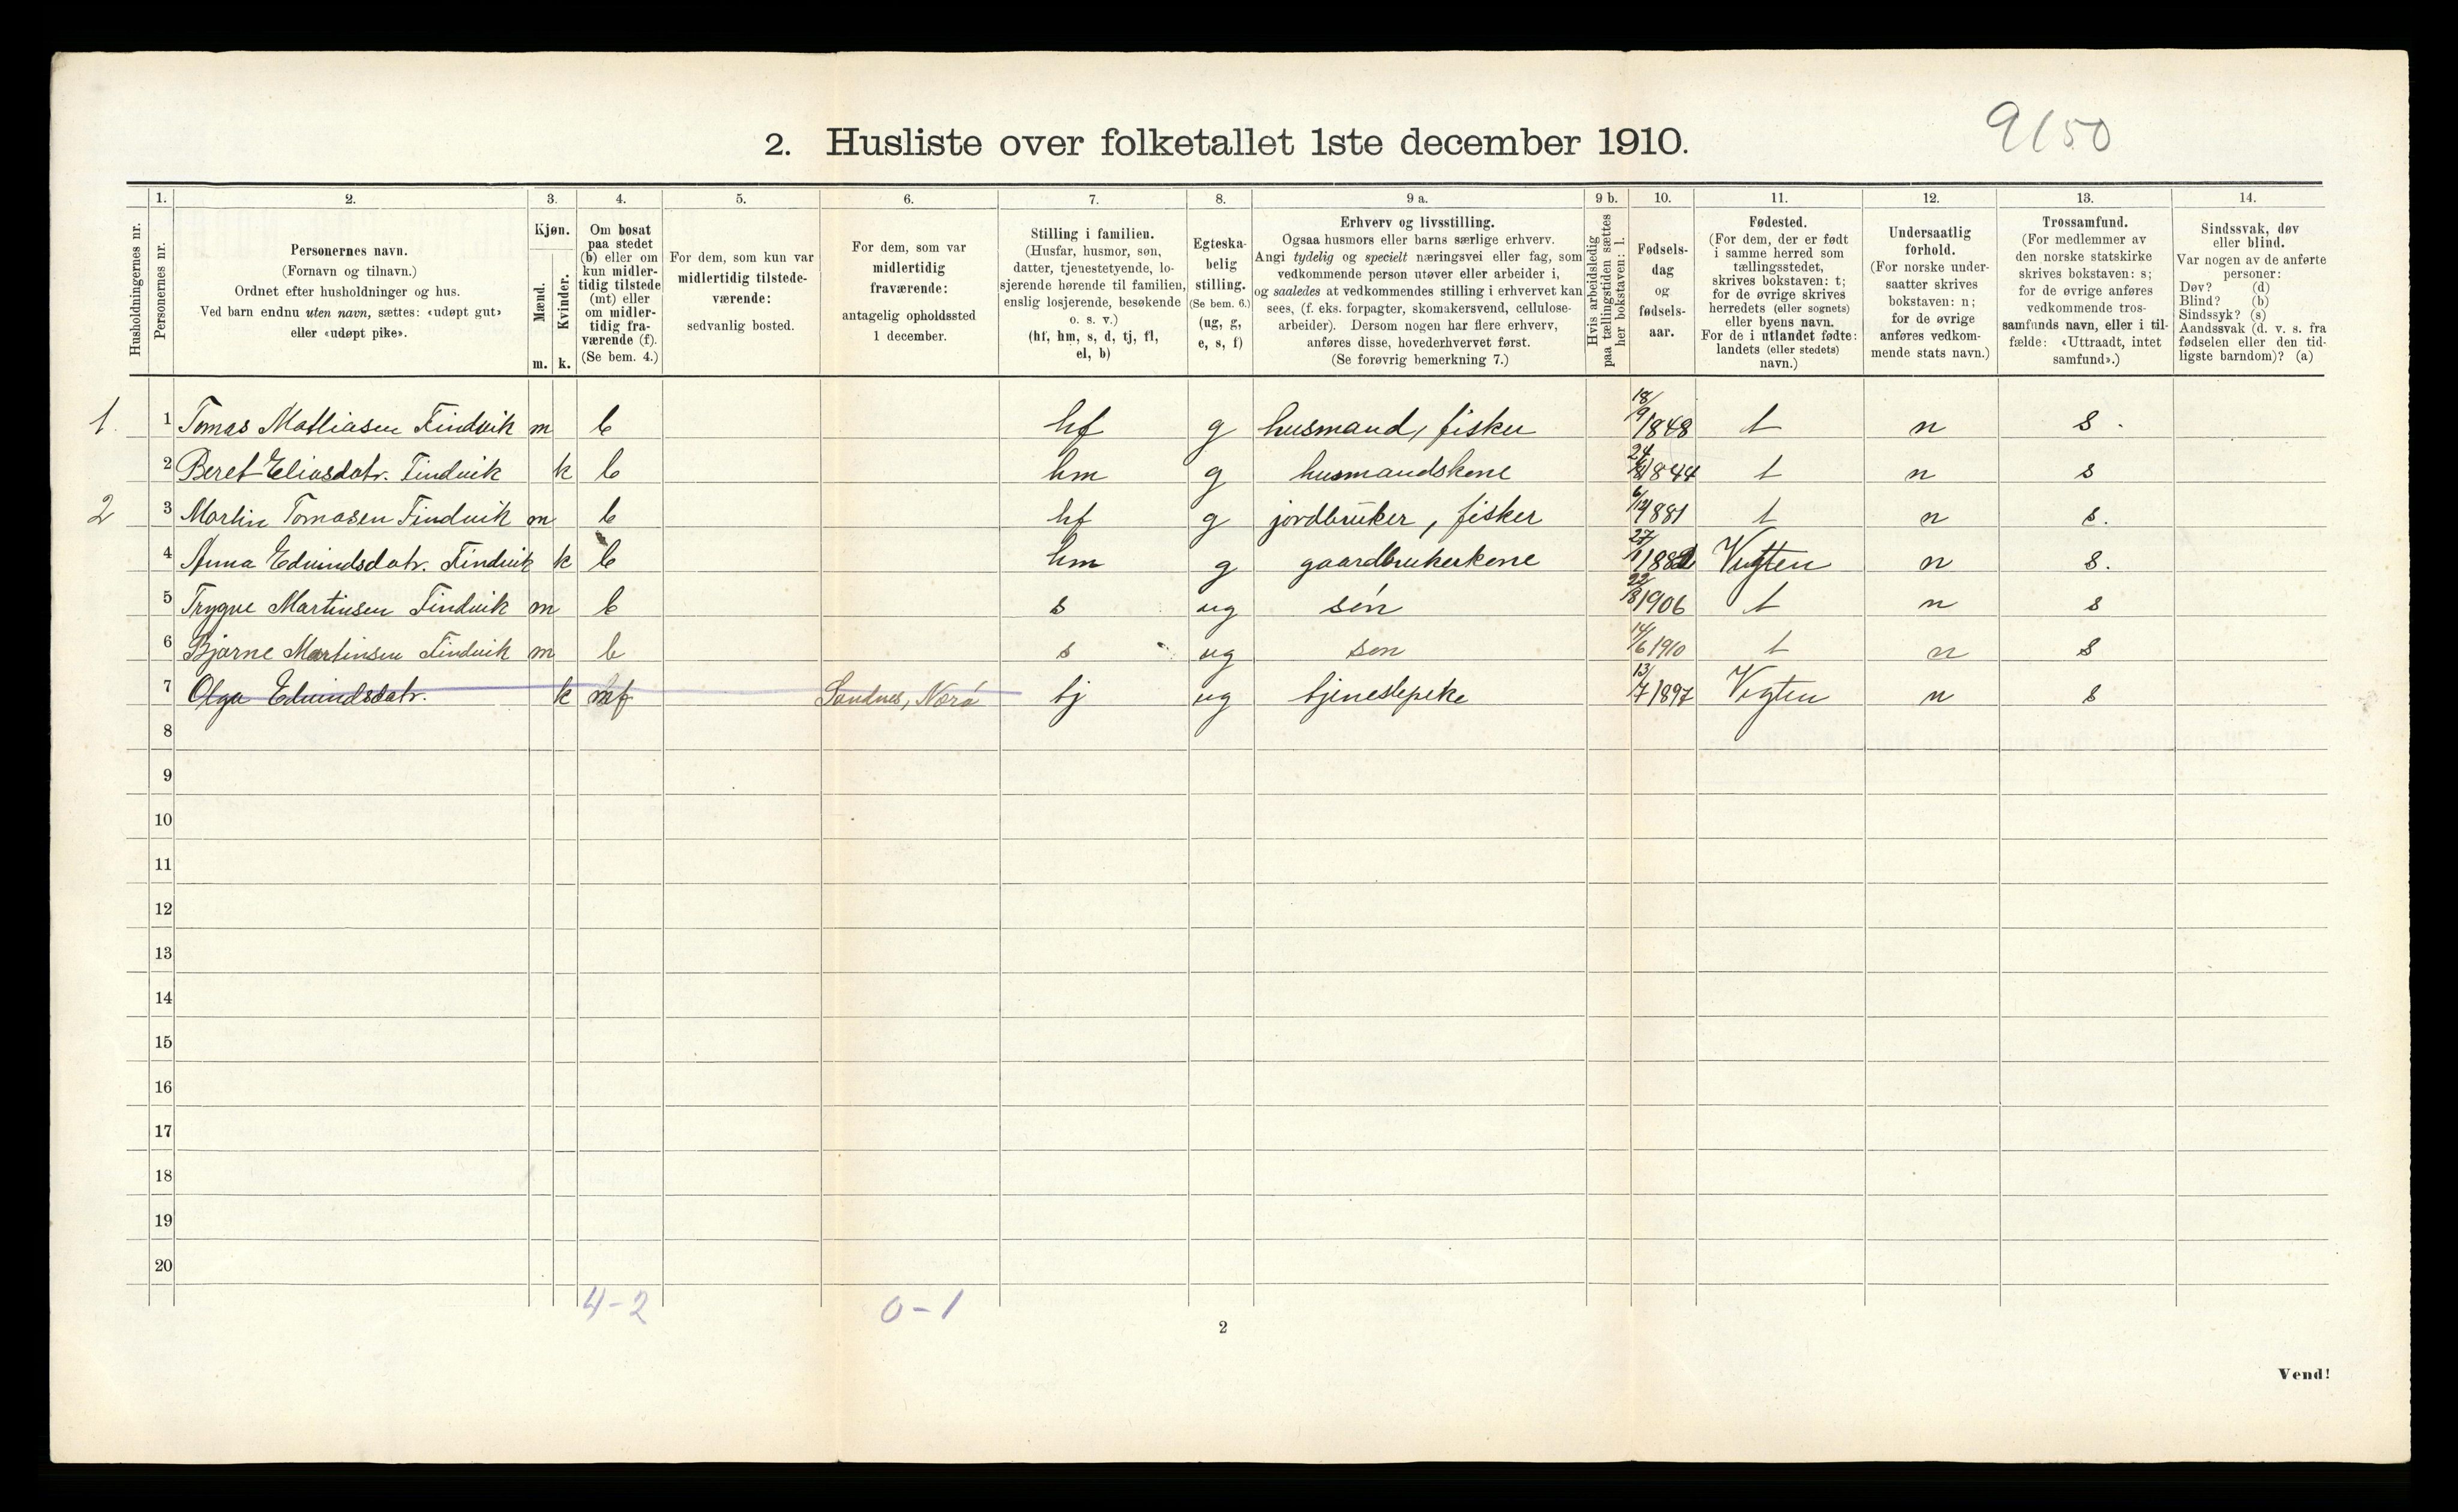 9/50
2. Husliste over folketallet 1ste december 1910.
1. 2. 3. 4. 5. 6. 7. 8. 9 a. 9 b. 10. 11. 12. 13. 14.
Husholdningernes nr.
Personernes nr.
Personernes navn.
(Fornavn og tilnavn.)
Ordnet efter husholdninger og hus.
Ved barn endnu uten navn, sættes: «udøpt gut»
eller «udøpt pike».
Kjøn.
Mænd.
Kvinder.
m. k.
Om bosat
paa stedet
(b) eller om
kun midler-
tidig tilstede
(mt) eller
om midler-
tidig fra-
værende (f).
(Se bem. 4.)
For dem, som kun var
midlertidig tilstede-
værende:
sedvanlig bosted.
For dem, som var
midlertidig
fraværende:
antagelig opholdssted
1 december.
Stilling i familien.
(Husfar, husmor, søn,
datter, tjenestetyende, lo-
sjerende hørende til familien,
enslig losjerende, besøkende
o. s. v.)
(hf, hm, s, d, tj, fl,
el, b)
Egteska-
belig
stilling.
(Se bem. 6.)
(ug, g,
e, s, f)
Erhverv og livsstilling.
Ogsaa husmors eller barns særlige erhverv.
Angi tydelig og specielt næringsvei eller fag, som
vedkommende person utøver eller arbeider i,
og saaledes at vedkommendes stilling i erhvervet kan
sees, (f. eks. forpagter, skomakersvend, cellulose-
arbeider). Dersom nogen har flere erhverv,
anføres disse, hovederhvervet først.
(Se forøvrig bemerkning 7.)
Hvis arbeidsledig
paa tællingstiden sættes
her bokstaven: l.
Fødsels-
dag
og
fødsels-
aar.
Fødested.
(For dem, der er født
i samme herred som
tællingsstedet,
skrives bokstaven: t;
for de øvrige skrives
herredets (eller sognets)
eller byens navn.
For de i utlandet fødte:
landets (eller stedets)
navn.)
Undersaatlig
forhold.
(For norske under-
saatter skrives
bokstaven: n;
for de øvrige
anføres vedkom-
mende stats navn.)
Trossamfund.
(For medlemmer av
den norske statskirke
skrives bokstaven: s;
for de øvrige anføres
vedkommende tros-
samfunds navn, eller i til-
fælde: «Uttraadt, intet
samfund».)
Sindssvak, døv
eller blind.
Var nogen av de anførte
personer:
Døv? (d)
Blind? (b)
Sindssyk? (s)
Aandssvak (d. v. s. fra
fødselen eller den tid-
ligste barndom)? (a)
1. 1 Tomas Matliasen Findvik m b hf g husmand, fisker 18/9 1848 t n s.
2 Beret Eliasdatr. Findvik k b hm g husmandskone 24/ 1844 t n s
2 3 Martin Tomasen Findvik m b hf g jordbruker, fisker 6/12 1881 t n s.
4 Anna Edvindsdatr. Findvik k b hm g gaardbrukerkone 27/1 Vigten n s.
5 Trygve Martinsen Findvik m b s ug søn 22/8 1906 t n s
6 Bjarne Martinsen Findvik m b s ug søn 14/6 1910 t n s
7 Olga Edvindsdatr. k f Sandnes, Nærø tj ug tjenestepike 13/7 1897 Vigten n s
8
9
10
11
12
13
14
15
16
17
18
19
20
4-2 0-1
2
Vend!